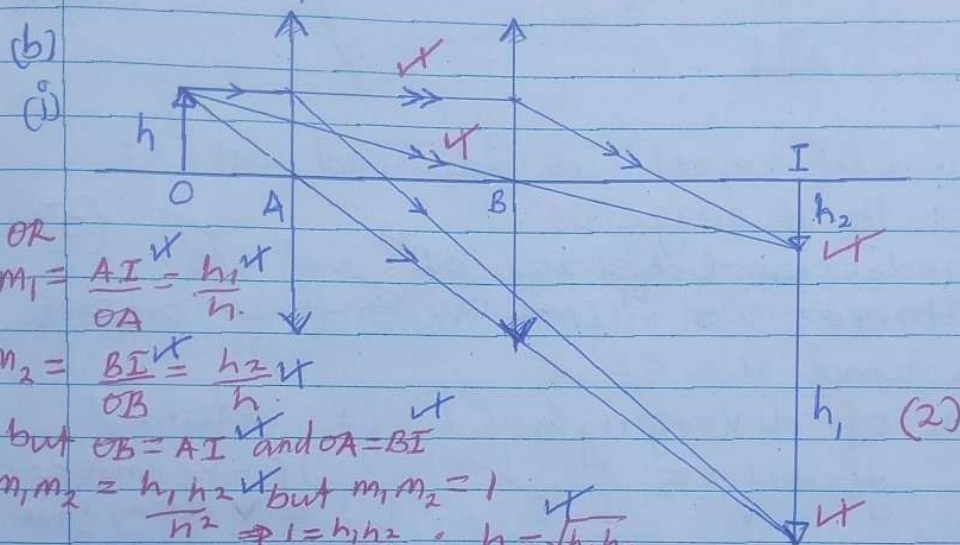 (b)
(i)
h
O
A
B
I
h₂
OR
m₁ = AI/OA = h₁/h.
m₂ = BI/OB = h₂/h.
h₁
(2)
but OB = AI and OA = BI
m₁m₂ = h₁h₂/h² but m₁m₂ = 1
⇒ 1 = h₁h₂ . h = √h₁h